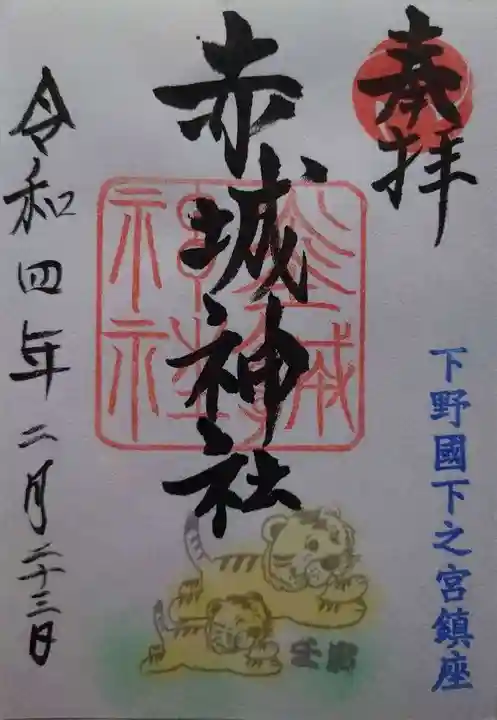 奉拝
下野國下之宮鎮座
赤城神社
令和四年二月二十三日
壬寅